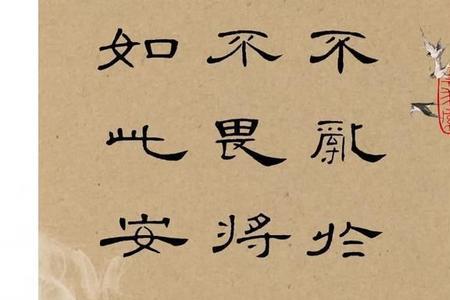 不亂於
不畏將
如此安